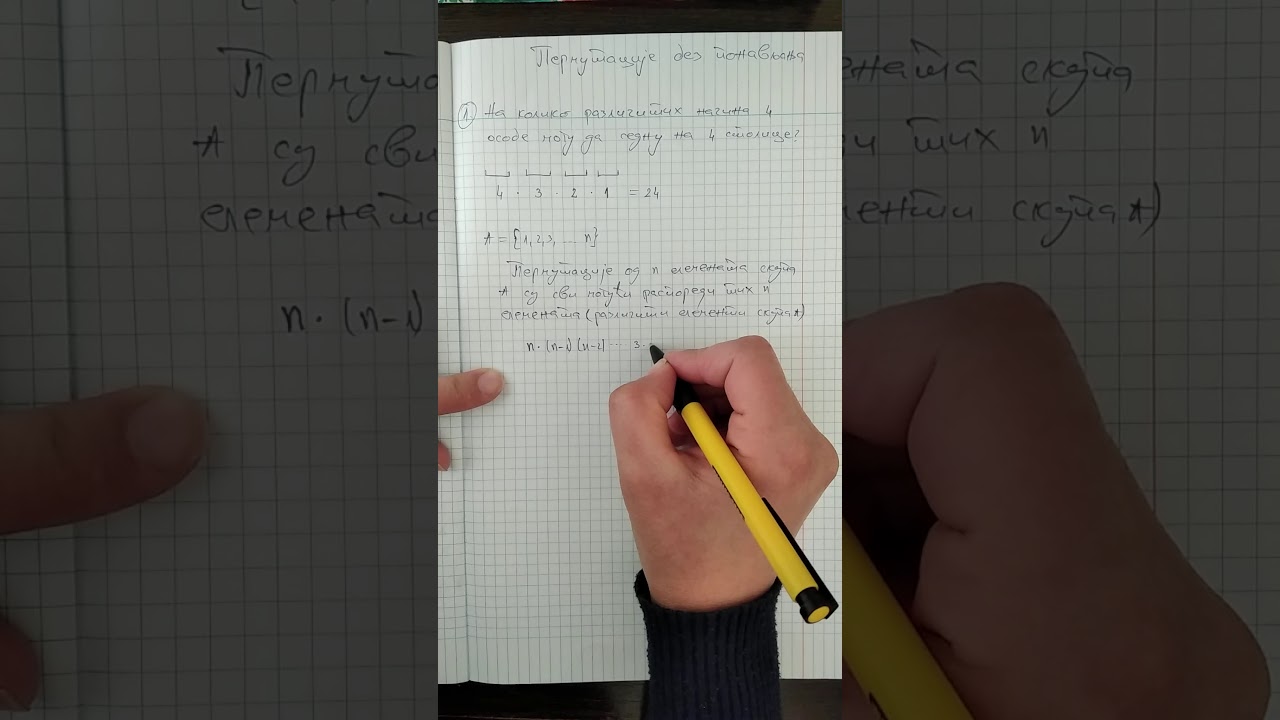 Пермутације без понављања
1 На колико различитих начина 4
особе могу да седну на 4 столице?
4 · 3 · 2 · 1 = 24
A = {1, 2, 3, ... n}
Пермутације од n елемената скупа
A су сви могући распореди тих n
елемената (различити елементи скупа A)
n · (n-1) (n-2) ... 3 ·